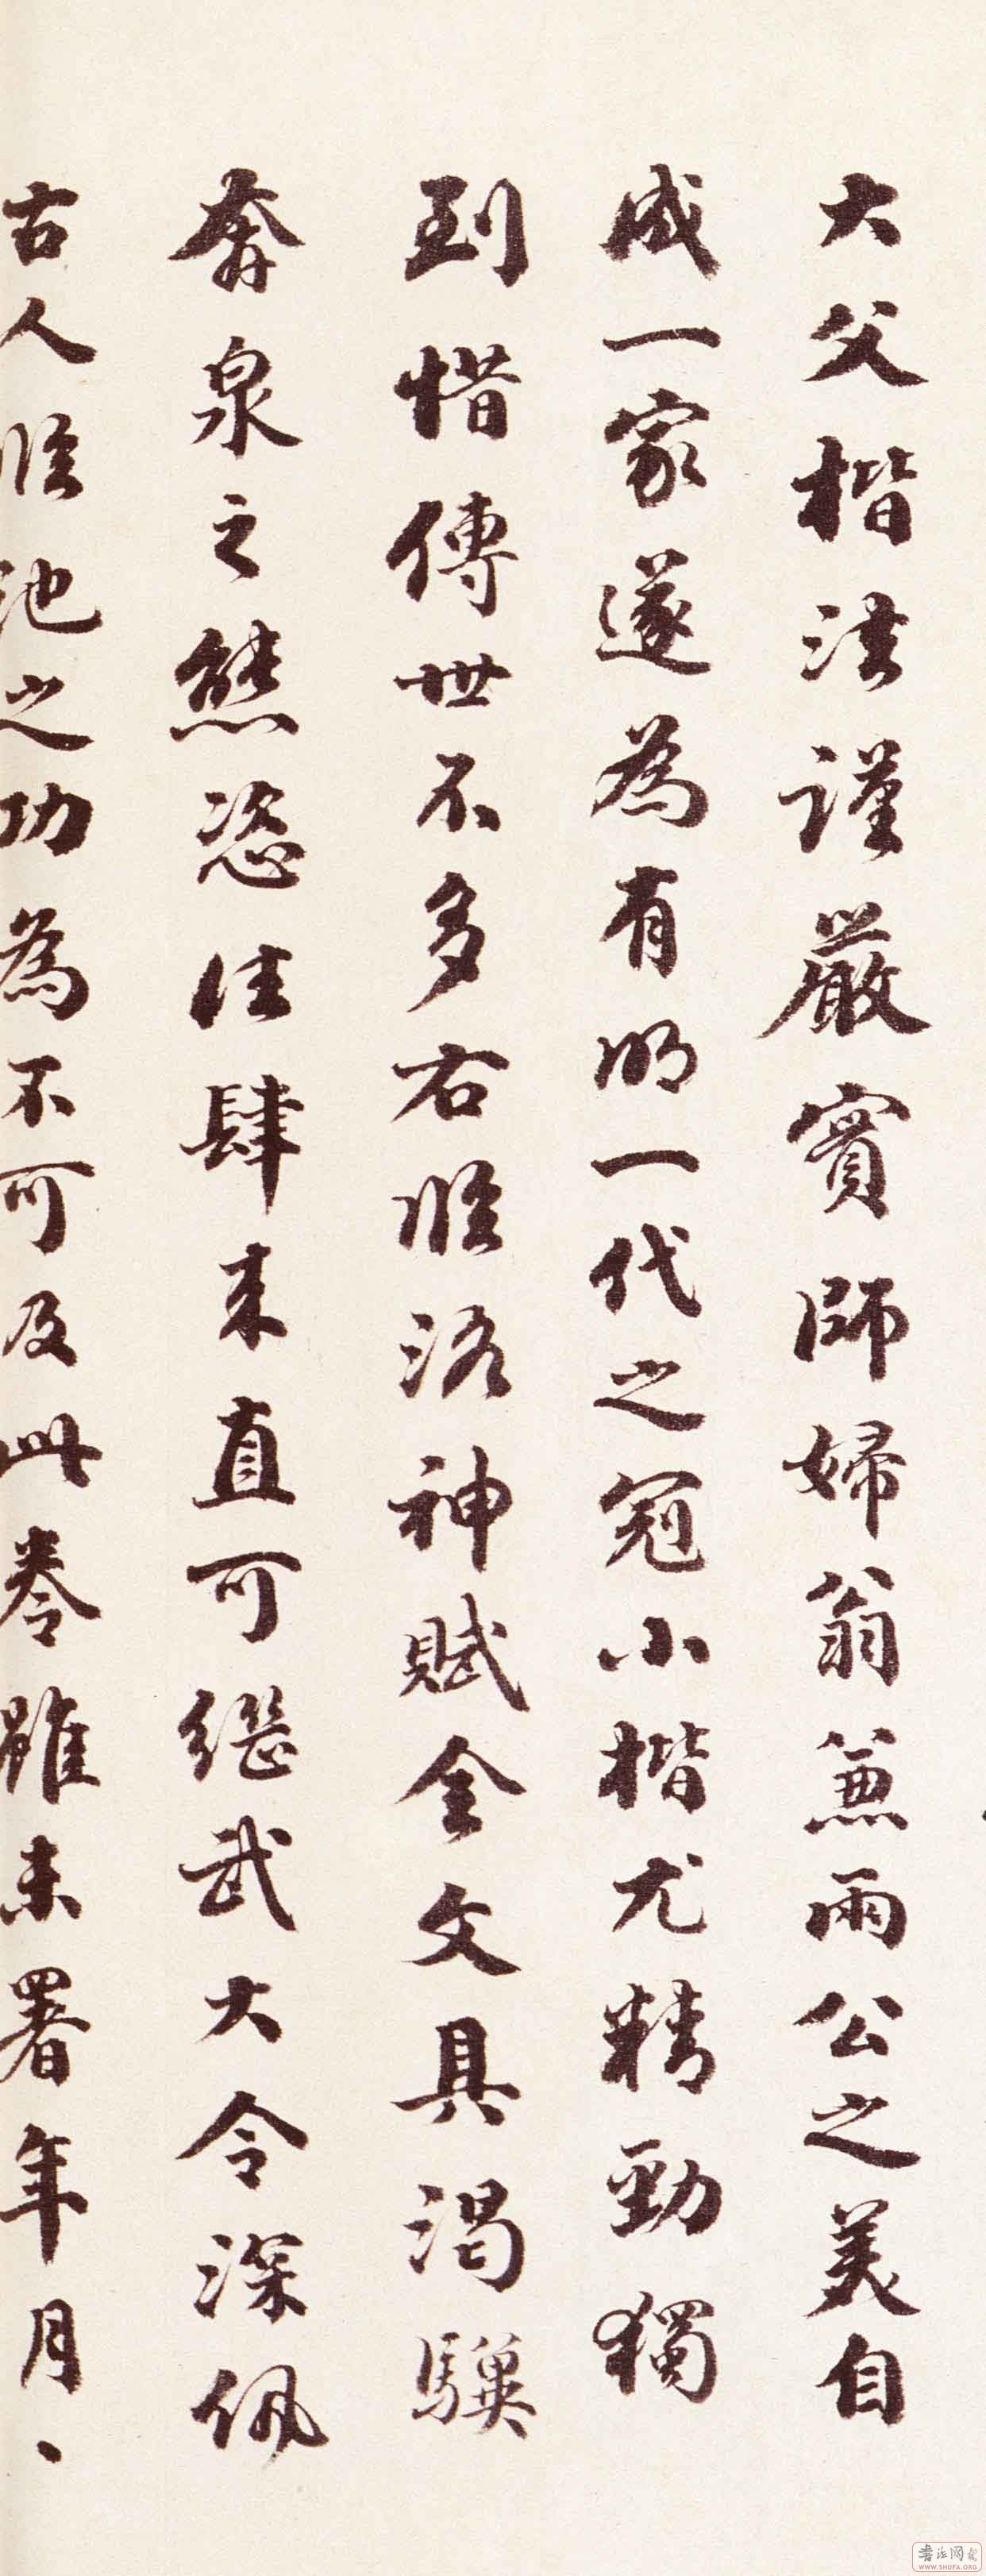 大父楷法謹嚴實師婦翁兼雨公之美自
成一家遂為有明一代之冠小楷尤精勁獨
到惜傳世不多右臨洛神賦全文具渴驥
奔泉之態恣往肆来直可繼武大令深佩
古人臨池之功為不可及此卷雖未署年月、
書法网
WWW.SHUFA.ORG